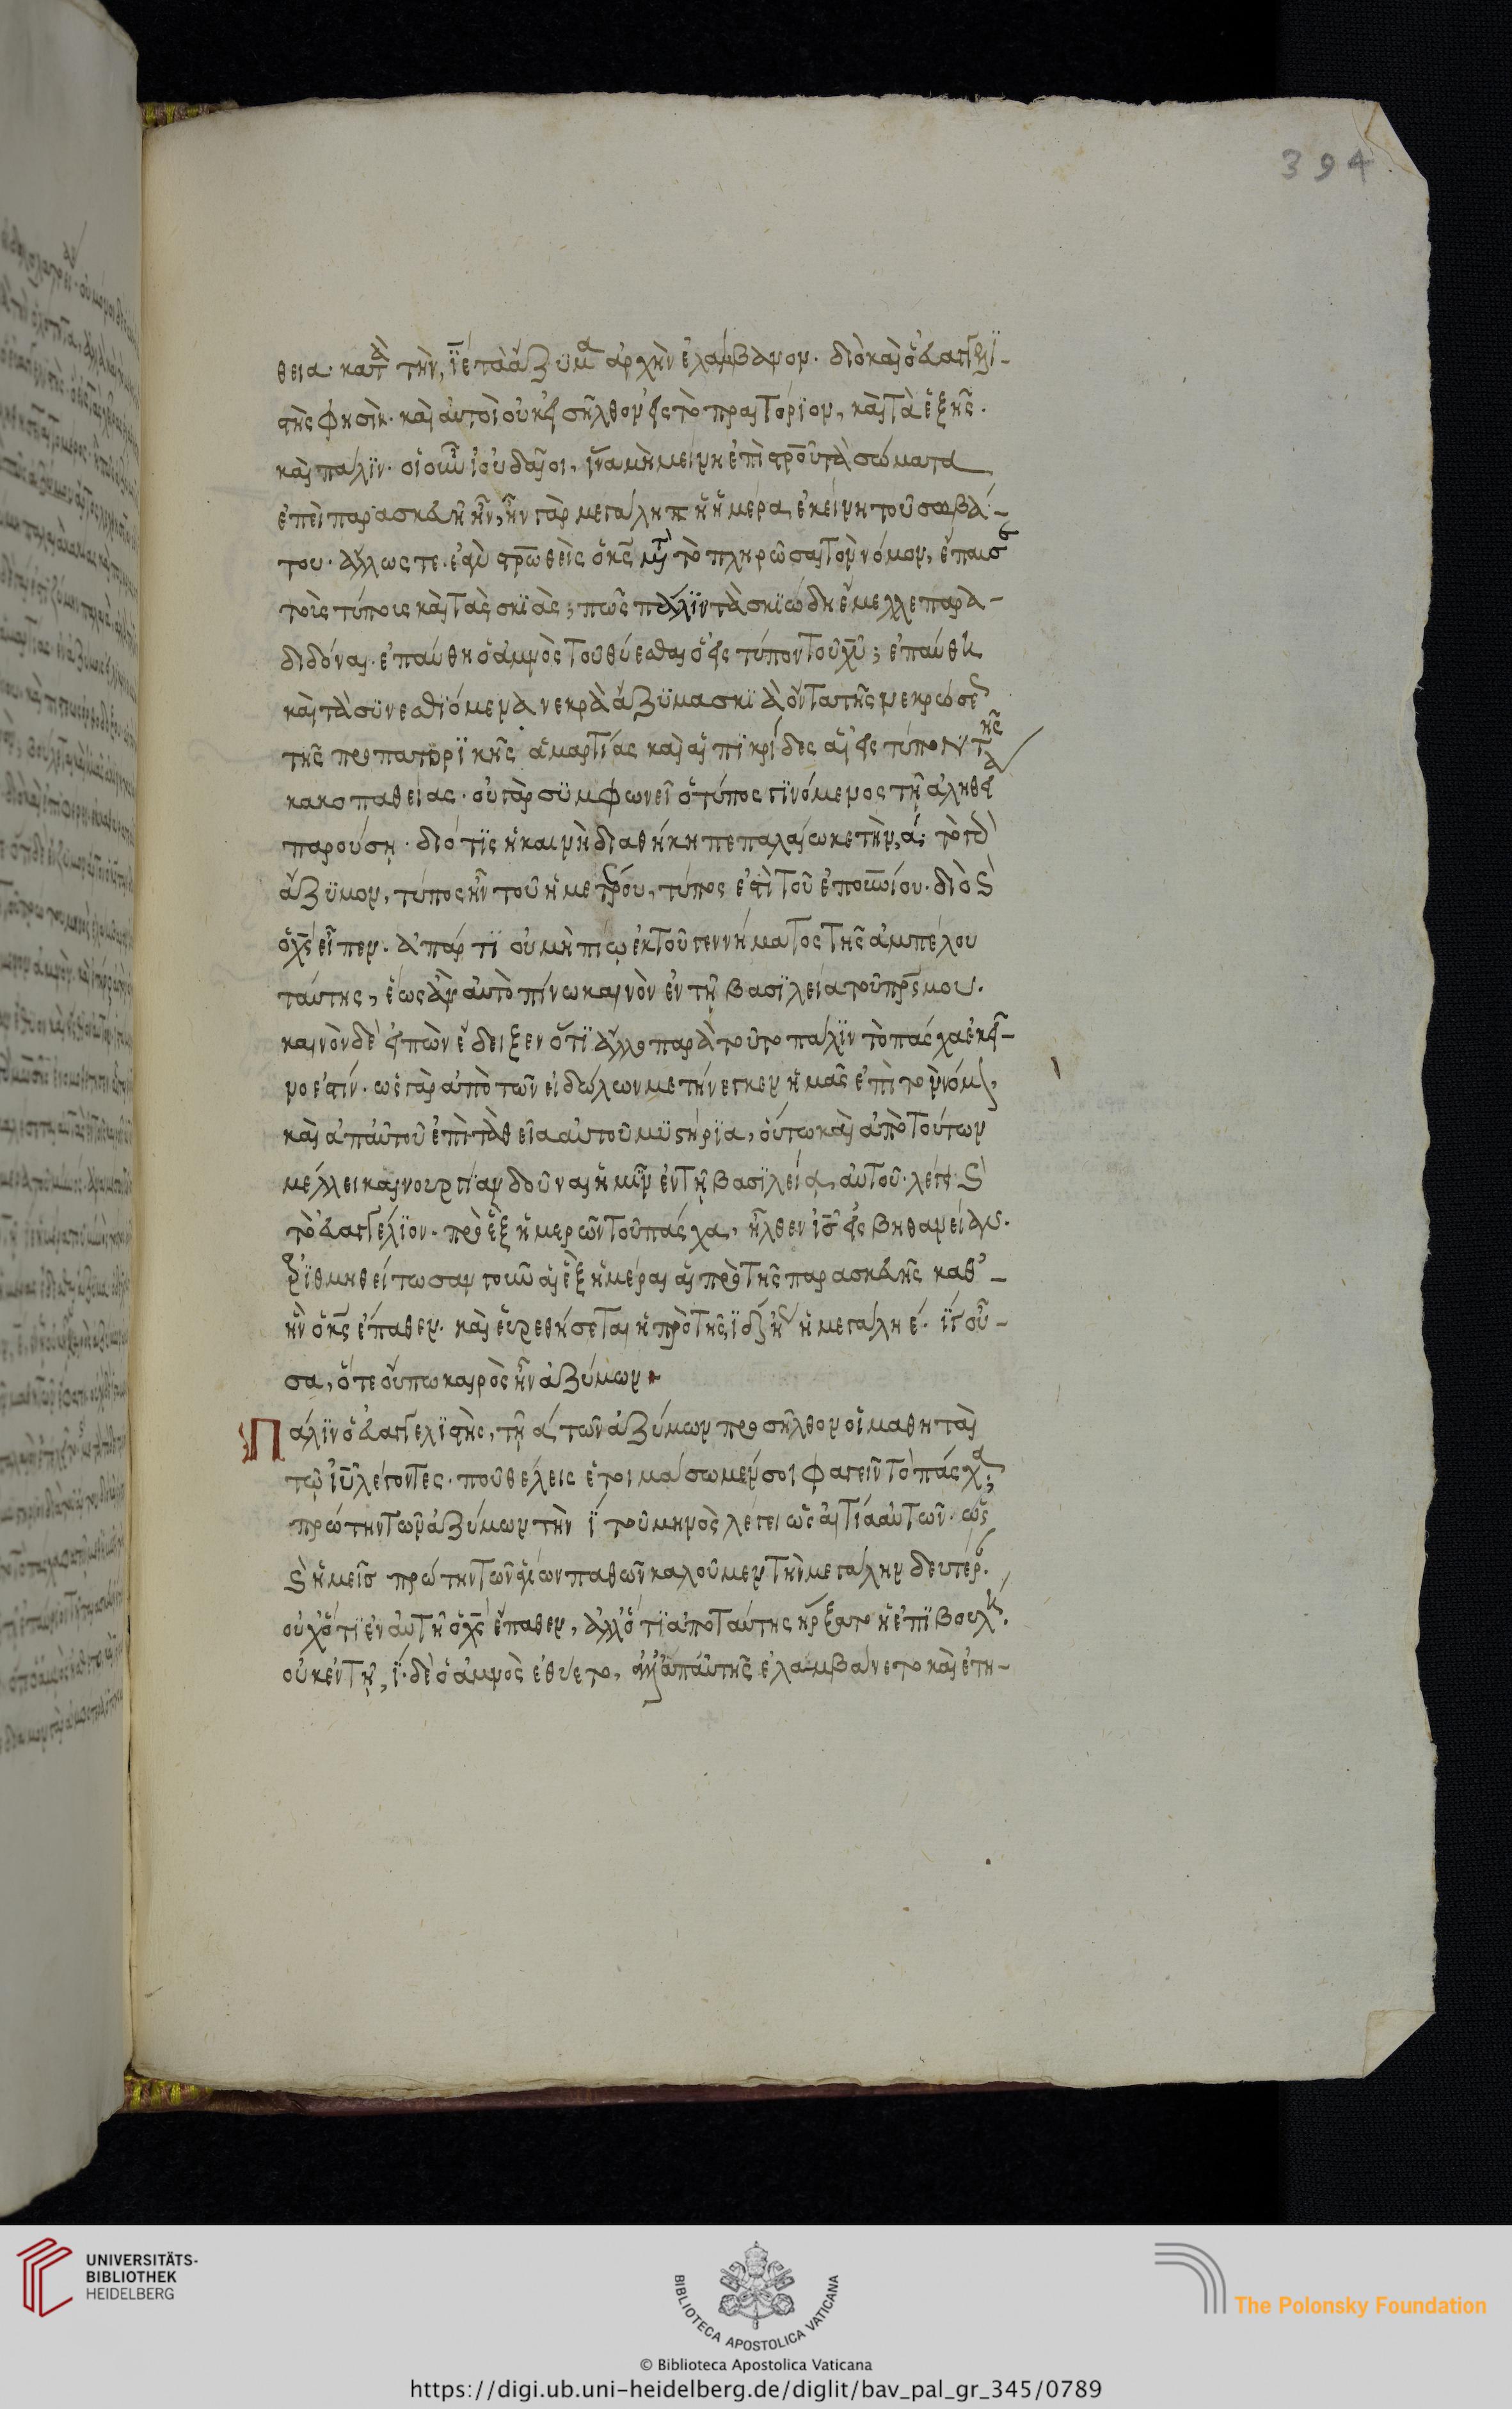 394
θεια· κατὰ τὴν, ϊε τὰ ἄζυμα ἀρχὴν ἐλάμβανον· διὸ καὶ ὁ εὐαγγελι-
στής φησιν· καὶ αὐτοὶ οὐκ εἰσῆλθον εἰς τὸ πραιτόριον, καὶ τὰ ἑξῆς.
καὶ πάλιν· οἱ οὖν ἰουδαῖοι, ἵνα μὴ μείνῃ ἐπὶ στρου τὰ σώματα
ἐπεὶ παρασκευὴ ἦν, ἦν γὰρ μεγάλη ἡ ἡμέρα ἐκείνη τοῦ σαββά-
του· ἄλλως τε· ἐὰν στρωθεὶς ὁ κς μετὰ τὸ πληρῶσαι τὸν νόμον, ἔπαυσε
τοὺς τύπους καὶ τὰς σκιάς; πῶς πάλιν τὰ σκιώδη ἔμελλε παρα-
διδόναι· ἐπαύθη ὁ ἀμνὸς τοῦ θύεσθαι ὁ εἰς τύπον τοῦ χυ; ἐπαύθη
καὶ τὰ συνεσθιόμενα νεκρὰ ἄζυμα σκιὰ ὄντα τῆς νεκρώσε
τῆς προπατορικῆς ἁμαρτίας καὶ αἱ πικρίδες αἱ εἰς τύπον τῆς
κακοπαθείας· οὐ γὰρ συμφωνεῖ ὁ τύπος γινόμενος τῇ ἀληθεί
παρούσῃ· διό τις ἡ καινὴ διαθήκη πεπαλαίωκε τὴν, α· τὸ γὰρ
ἄζυμον, τύπος ἦν τοῦ ἡμετέρου, τύπος ἐστὶ τοῦ ἐπουνίου· διὸ καὶ
ὁ χς εἶπεν· ἀπάρτι οὐ μὴ πίω ἐκ τοῦ γεννήματος τῆς ἀμπέλου
ταύτης, ἕως ἂν αὐτὸ πίνω καινὸν ἐν τῇ βασιλεία τοῦ πρς μου.
καινὸν δὲ εἰπὼν ἔδειξεν ὅτι ἄλλο παρὰ τοῦτο πάλιν τὸ πάσχα ἐκεῖ-
νο ἐστίν· ὡς γὰρ ἀπὸ τῶν εἰδώλων μετήνεγκεν ἡμᾶς ἐπὶ τὸν νόμον,
καὶ ἀπ' αὐτοῦ ἐπὶ τὰ θεῖα αὐτοῦ μυστήρια, οὕτω καὶ ἀπὸ τούτων
μέλλει καινουργίαν δοῦναι ἡμῖν ἐν τῇ βασιλείᾳ αὐτοῦ· λέγει καὶ
τὸ εὐαγγέλιον· πρὸ ἓξ ἡμερῶν τοῦ πάσχα, ἦλθεν ις εἰς βηθανείαν·
ἀριθμηθείτωσαν τοίνυν αἱ ἓξ ἡμέραι αἱ πρὸ τῆς παρασκευῆς καθ' -
ἣν ὁ κς ἔπαθεν· καὶ εὑρεθήσεται ἡ πρὸ τῆς ιδ ἡ μεγάλη ε· ιγ οὖ-
σα, ὅτε οὔπω καιρὸς ἦν ἀζύμων
Πάλιν ὁ εὐαγγελιστής, τῇ α τῶν ἀζύμων προσῆλθον οἱ μαθηταὶ
τῷ ιυ λέγοντες· ποῦ θέλεις ἑτοιμάσωμέν σοι φαγεῖν τὸ πάσχα;
πρώτην τῶν ἀζύμων τὴν ϊ τοῦ μηνὸς λέγει ὡς αἰτία αὐτῶν· ὡς
καὶ ἡμεῖς πρώτην τῶν ἁγίων παθῶν καλοῦμεν τὴν μεγάλην δευτέρ.
οὐχ' ὅτι ἐν αὐτῇ ὁ χς ἔπαθεν, ἀλλ' ὅτι ἀπὸ ταύτης ἤρξατο ἡ ἐπιβουλή.
οὐκ ἐν τῇ, ϊ· δὲ ὁ ἀμνὸς ἐθύετο, ἀπ' αὐτῆς ἐλαμβάνετο καὶ ἐτη-
UNIVERSITÄTS-
BIBLIOTHEK
HEIDELBERG
BIBLIOTECA APOSTOLICA VATICANA
The Polonsky Foundation
© Biblioteca Apostolica Vaticana
https://digi.ub.uni-heidelberg.de/diglit/bav_pal_gr_345/0789